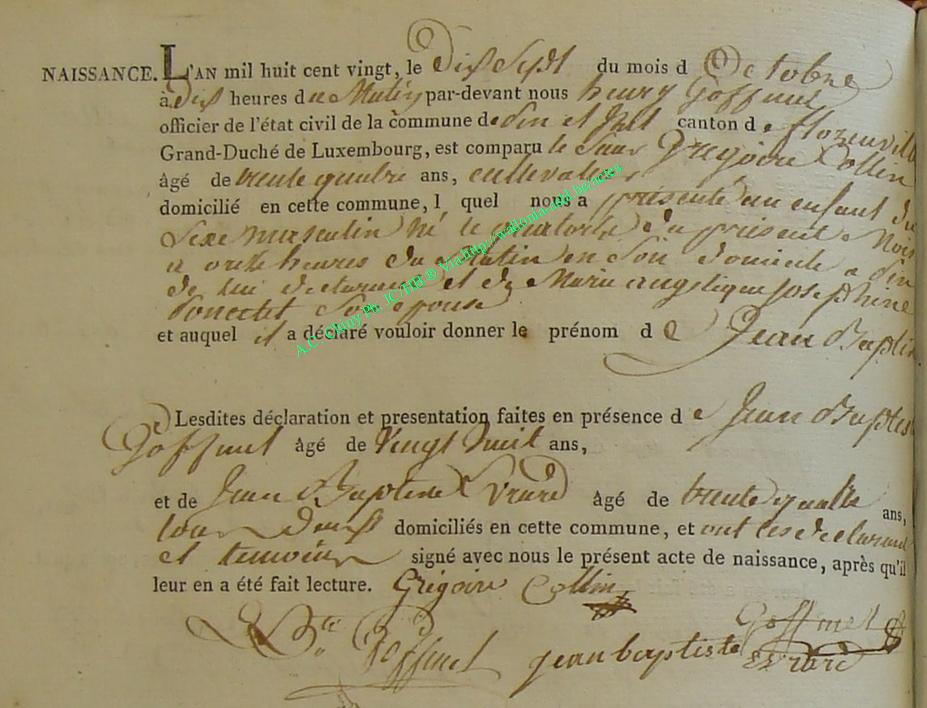 NAISSANCE. L'AN mil huit cent vingt, le Dix Sept du mois d'Octobre
à dix heures du Matin par-devant nous henry Goffinet
officier de l'état civil de la commune de et canton de florenville
Grand-Duché de Luxembourg, est comparu le Sieur Gregoire Collin
âgé de trente quatre ans, cultivateur
domicilié en cette commune, l quel nous a présenté un enfant du
Sexe masculin né le quatorze du présent Mois
a onze heures du Matin en Son domicile a
de lui declarant et de Marie angelique josephine
Poncelet Son epouse
et auquel il a déclaré vouloir donner le prénom de Jean Baptiste
Lesdites déclaration et presentation faites en présence de Jean Baptiste
Goffinet âgé de vingt huit ans,
et de Jean Baptiste Evrard âgé de trente quatre ans,
tous Deux domiciliés en cette commune, et ont les declarant
et temoins signé avec nous le présent acte de naissance, après qu'il
leur en a été fait lecture. Grégoire Collin
Goffinet
J Bte Goffinet jean baptiste Evrard
A.C. Chiny Ph. JC/HB ® Via http://wallonia-ard.be/actes